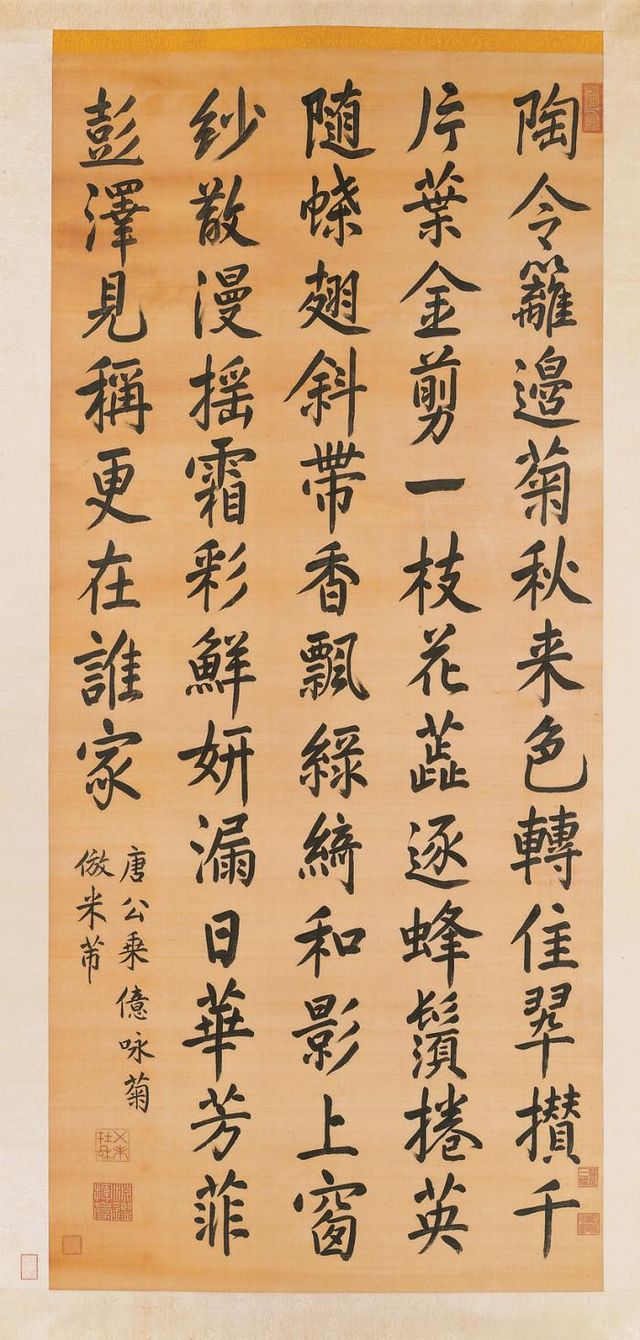 陶令籬邊菊秋来色轉佳翠攢千
片葉金剪一枝花蕋逐蜂鬚捲英
随蝶翅斜帶香飄綠綺和影上窗
紗散漫揺霜彩鮮妍漏日華芳菲
彭澤見稱更在誰家
唐公乗億咏菊
倣米芾